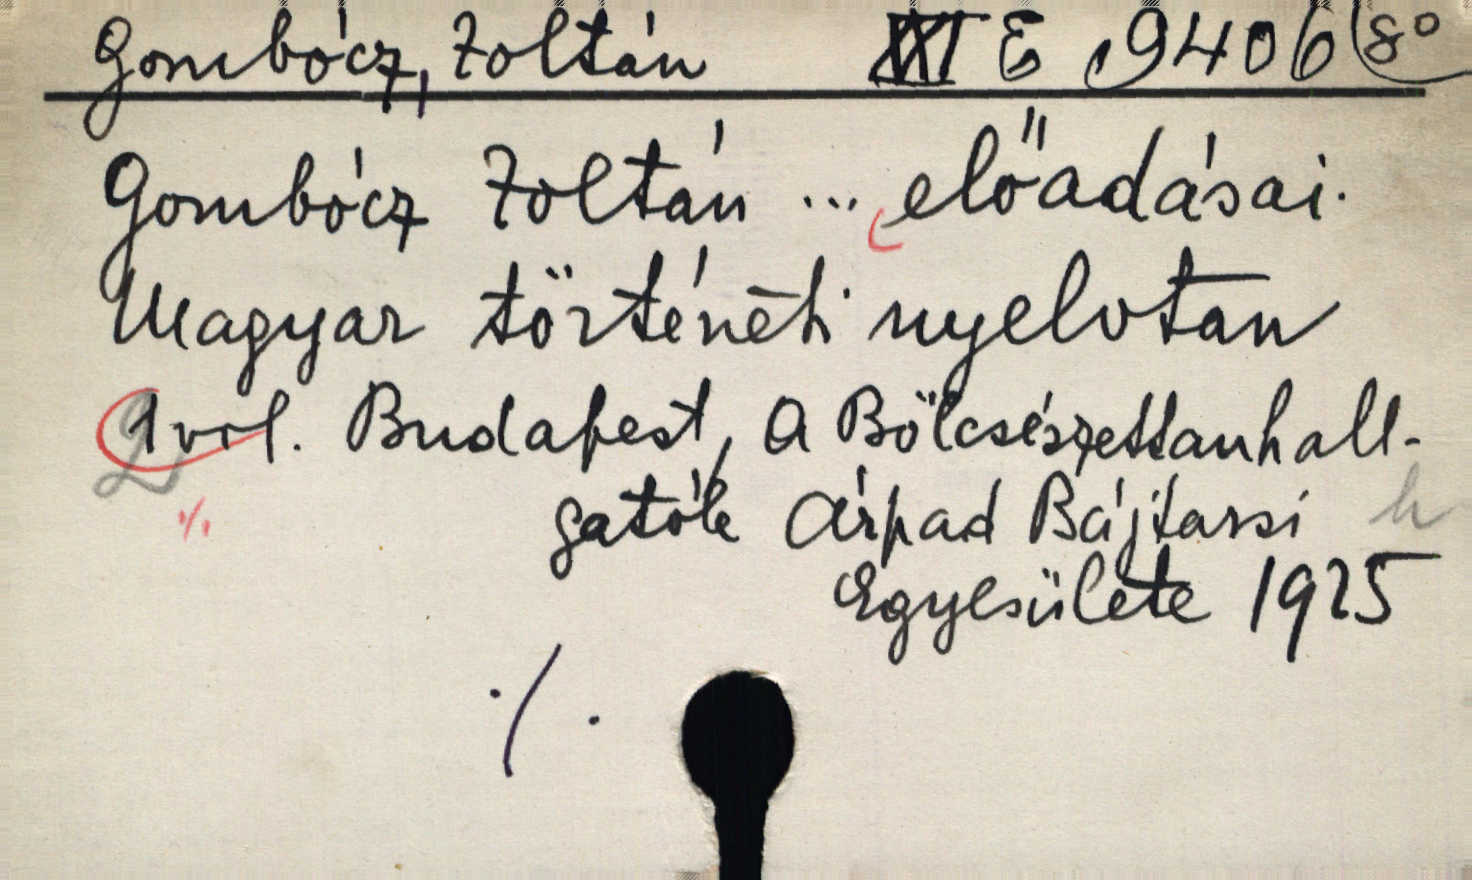 Gombócz, Zoltán XVI E 9406 8°
Gombócz Zoltán ... előadásai.
Magyar történeti nyelvtan
1 vol. Budapest, A Bölcsészettanhall-
gatók Árpád Bajtársi
Egyesülete 1925
./.